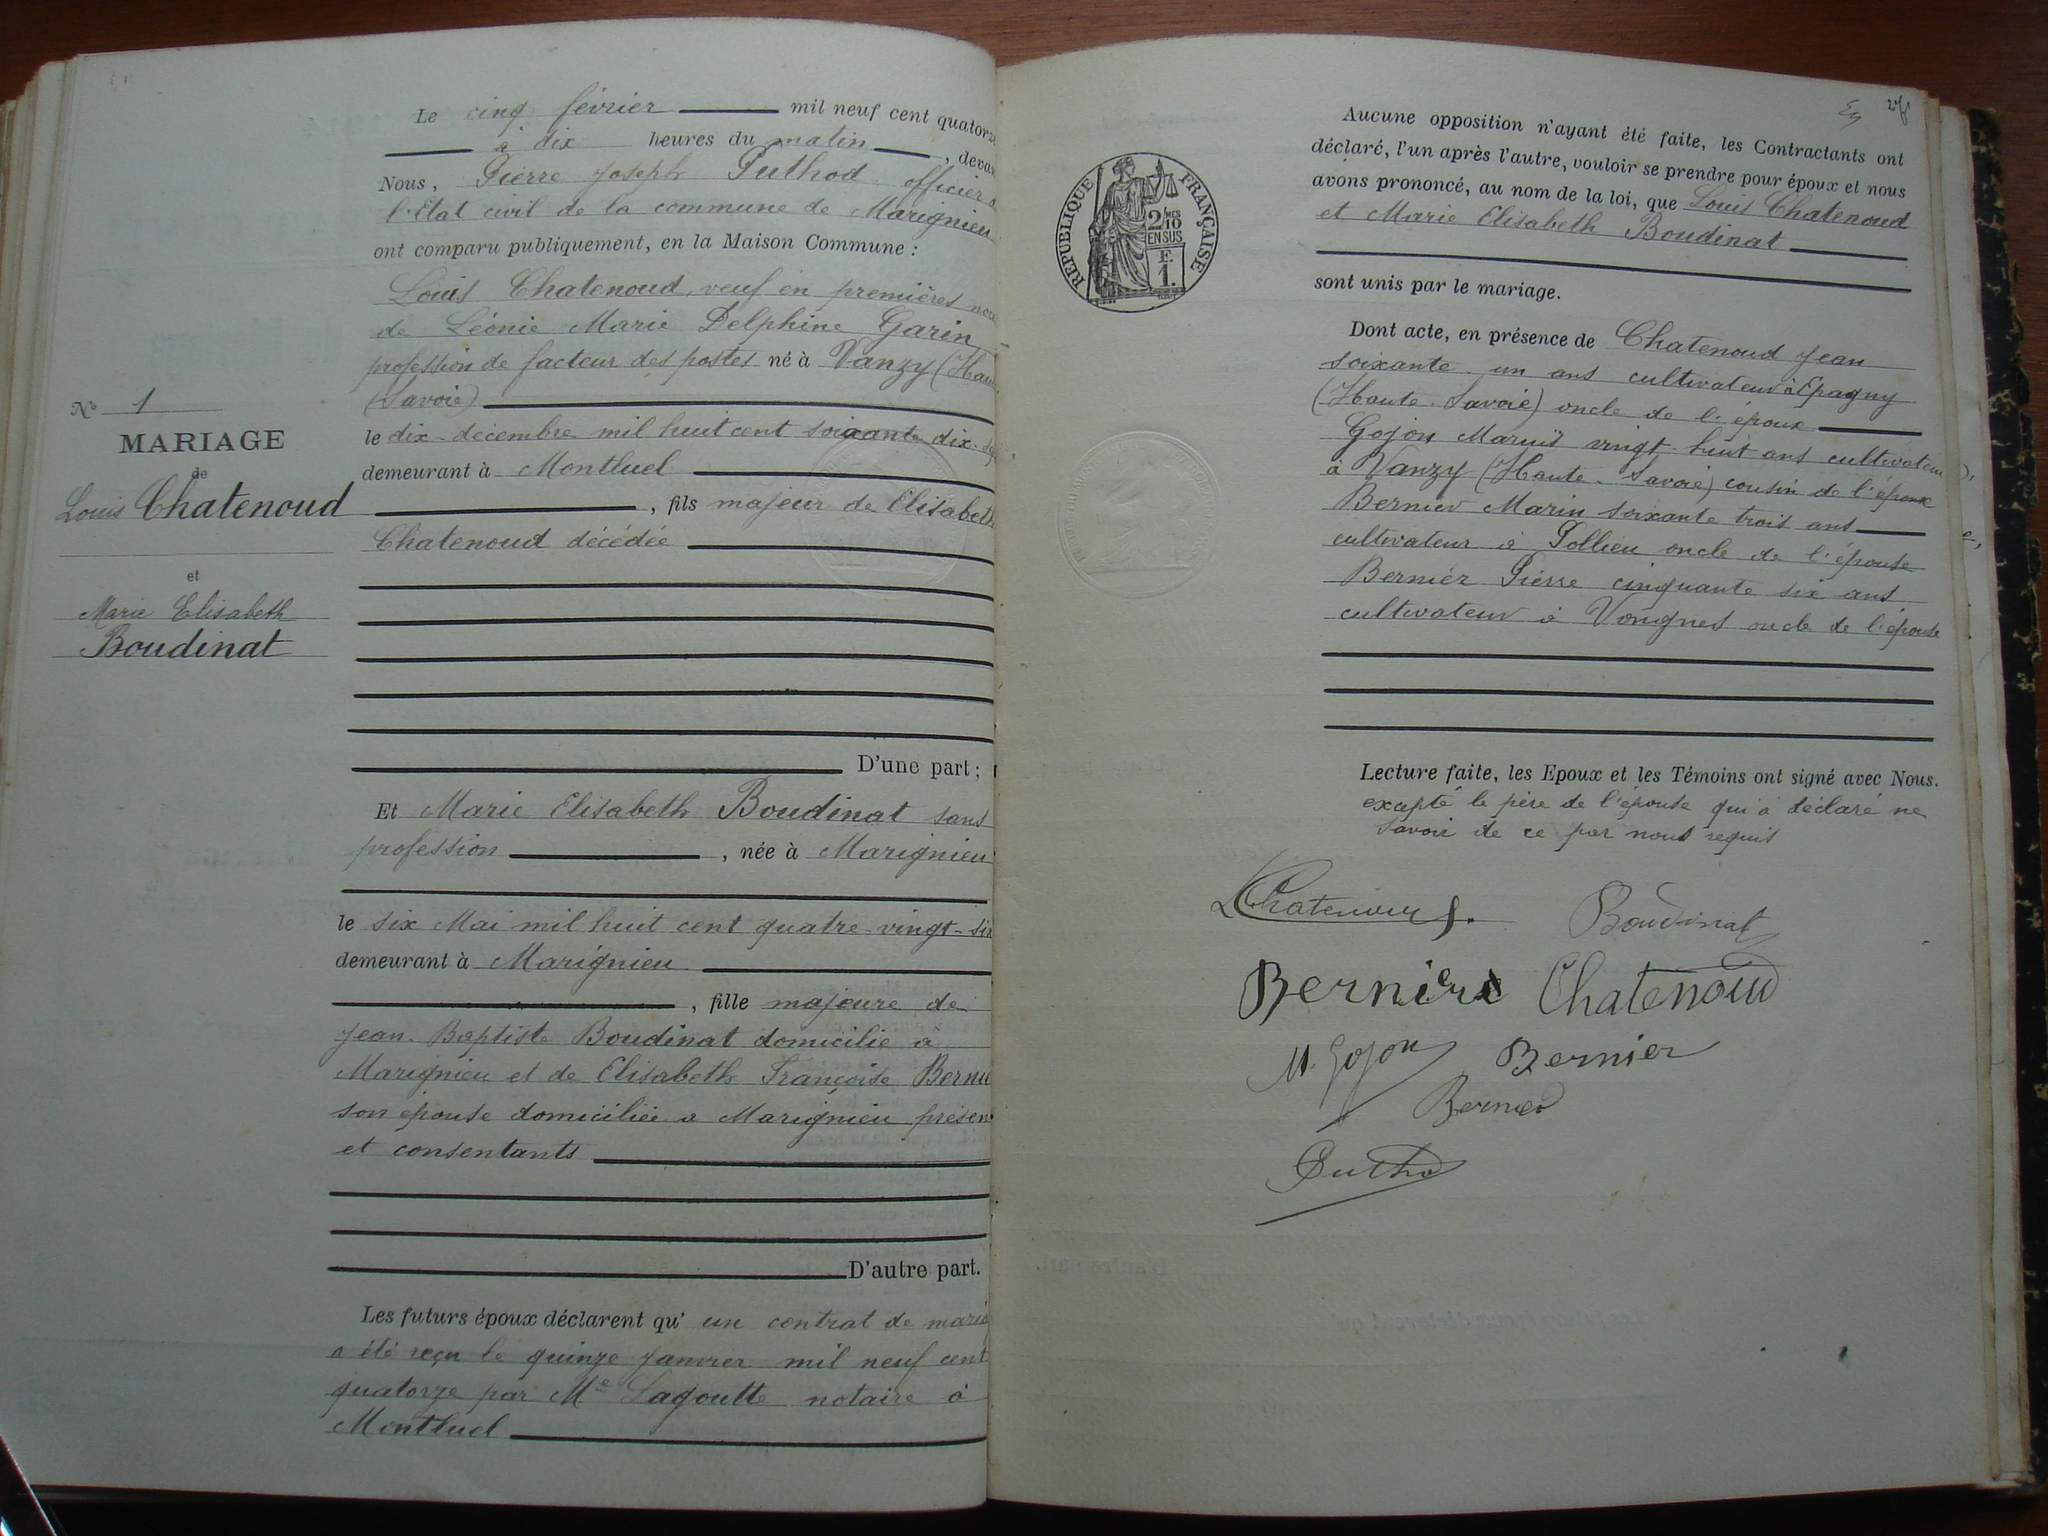 Nº 1
MARIAGE
de
Louis Chatenoud
et
Marie Elisabeth
Boudinat
Le cinq février mil neuf cent quatorze
à dix heures du matin, deva
Nous, Pierre Joseph Puthod officier d
l'Etat civil de la commune de Marignieu
ont comparu publiquement, en la Maison Commune :
Louis Chatenoud, veuf en premières noc
de Léonie Marie Delphine Garin
profession de facteur des postes né à Vanzy (Haute
(Savoie)
le dix décembre mil huit cent soixante dix-sep
demeurant à Montluel
, fils majeur de Elisabeth
Chatenoud décédée
D'une part ;
Et Marie Elisabeth Boudinat sans
profession, née à Marignieu
le six Mai mil huit cent quatre-vingt-six
demeurant à Marignieu
, fille majeure de
Jean-Baptiste Boudinat domicilié à
Marignieu et de Elisabeth Françoise Berni
son épouse domiciliée à Marignieu présen
et consentants
D'autre part.
Les futurs époux déclarent qu' un contrat de maria
a été reçu le quinze Janvier mil neuf cent
quatorze par Me Lagoutte notaire à
Montluel
27
RÉPUBLIQUE FRANÇAISE
2/10
EN SUS
F.
1.
Aucune opposition n'ayant été faite, les Contractants ont
déclaré, l'un après l'autre, vouloir se prendre pour époux et nous
avons prononcé, au nom de la loi, que Louis Chatenoud
et Marie Elisabeth Boudinat
sont unis par le mariage.
Dont acte, en présence de Chatenoud Jean
soixante un ans cultivateur à Epagny
(Haute-Savoie) oncle de l'époux
Gojon Marius vingt-huit ans cultivateur
à Vanzy (Haute-Savoie) cousin de l'époux
Bernier Marin soixante trois ans
cultivateur à Pollieu oncle de l'épouse
Bernier Pierre cinquante six ans
cultivateur à Vongnes oncle de l'épouse
Lecture faite, les Epoux et les Témoins ont signé avec Nous.
excepté le père de l'épouse qui a déclaré ne
savoir de ce par nous requis
LChatenoud Boudinat
Bernier Chatenoud
M. Gojon Bernier
Bernier
Puthod